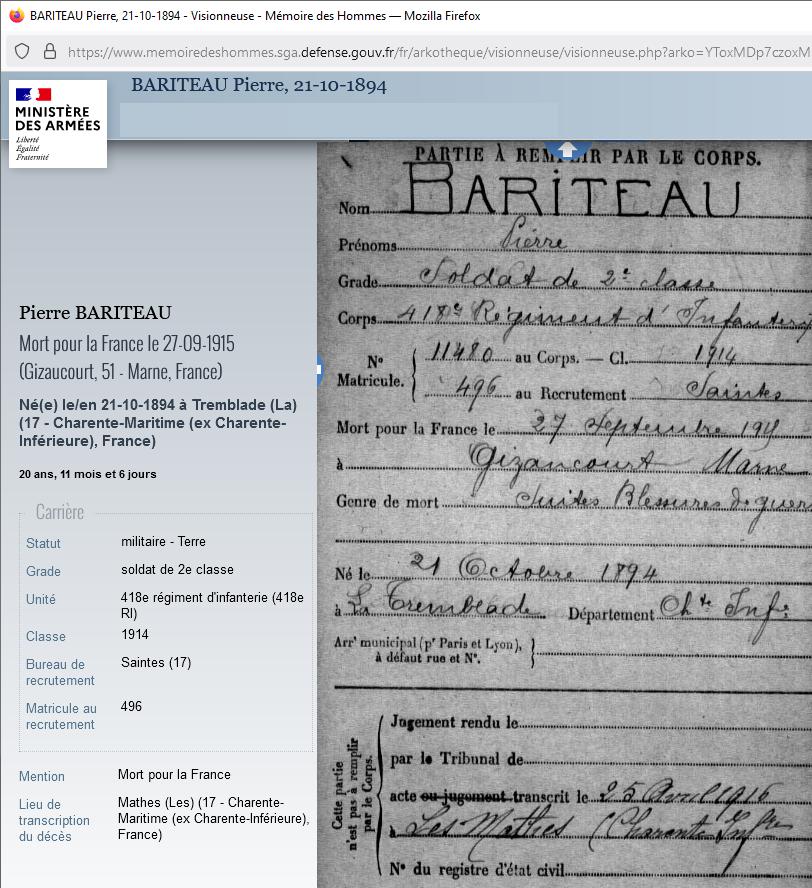 BARITEAU Pierre, 21-10-1894 - Visionneuse - Mémoire des Hommes — Mozilla Firefox
https://www.memoiredeshommes.sga.defense.gouv.fr/fr/arkotheque/visionneuse/visionneuse.php?arko=YToxMDp7czoxM
BARITEAU Pierre, 21-10-1894
MINISTÈRE
DES ARMÉES
Liberté
Égalité
Fraternité
Pierre BARITEAU
Mort pour la France le 27-09-1915
(Gizaucourt, 51 - Marne, France)
Né(e) le/en 21-10-1894 à Tremblade (La)
(17 - Charente-Maritime (ex Charente-
Inférieure), France)
20 ans, 11 mois et 6 jours
Carrière
Statut militaire - Terre
Grade soldat de 2e classe
Unité 418e régiment d'infanterie (418e
RI)
Classe 1914
Bureau de Saintes (17)
recrutement
Matricule au 496
recrutement
Mention Mort pour la France
Lieu de Mathes (Les) (17 - Charente-
transcription Maritime (ex Charente-Inférieure),
du décès France)
PARTIE À REMPLIR PAR LE CORPS.
Nom BARITEAU
Prénoms Pierre
Grade Soldat de 2e classe
Corps 418e Régiment d'Infanterie
No 11480 au Corps. — Cl. 1914
Matricule. 496 au Recrutement Saintes
Mort pour la France le 27 Septembre 191
à Gizancourt Marne
Genre de mort Suites Blessures de guerr
Né le 21 Octobre 1894
à La Tremblade Département Chte Infre
Arrt municipal (pr Paris et Lyon),
à défaut rue et No.
Cette partie
n'est pas à remplir
par le Corps.
Jugement rendu le
par le Tribunal de
acte ou jugement transcrit le 25 Avril 1916
à Les Mathes (Charente Infre
No du registre d'état civil